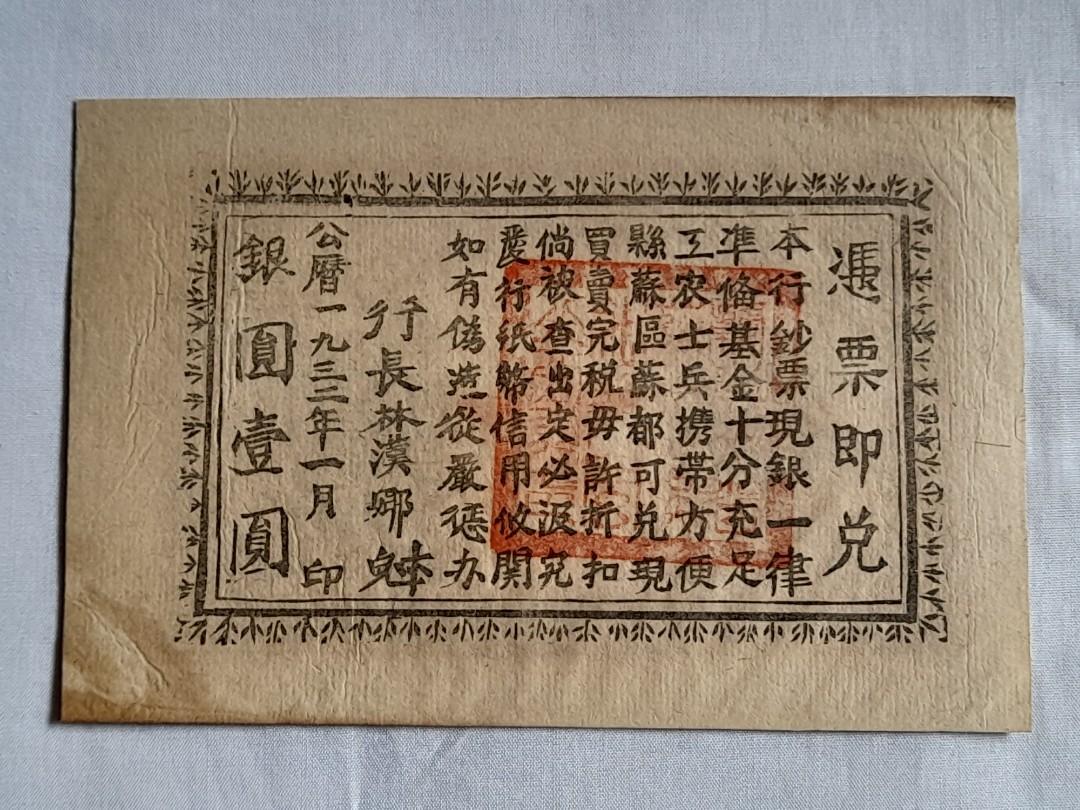 憑票即兑
本行鈔票現銀一律
準俻基金十分充足
工农士兵携带方便
縣蘇區蘇都可兑現
買賣完税毋許折扣
倘被查出定必泿究
愛行纸幣信用攸関
如有偽造從嚴懲办
行長林漢娜
公曆一九三三年一月 印
銀圓壹圓